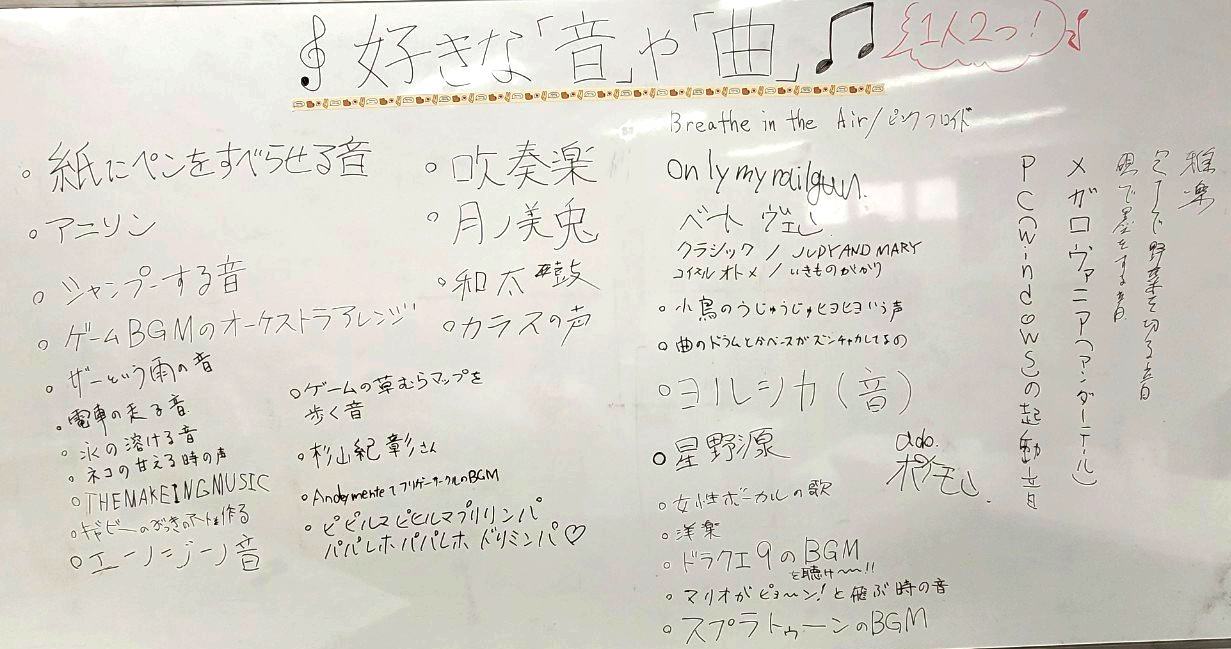 好きな「音」や「曲」
1人2つ!
・紙にペンをすべらせる音
・アニソン
・シャンプーする音
ゲームBGMのオーケストラアレンジ
・ザーという雨の音
・電車の走る音
・氷の溶ける音
ネコの甘える時の声
○THEMAKEINGMUSIC
・吹奏楽
・月ノ美兎
・和太鼓
・カラスの声
○ゲームの草むらマップを
歩く音
・杉山紀彰さん
・AndymenteてフリゲーサークルのBGM
・ピピルマピピルマプリリンパ
パパレホパパレホドリミンパ♡
Breathe in the Air/ピンクフロイド
only my railgun.
ベートーヴェン
クラシック / JUDY AND MARY
コイスルオトメ / いきものがかり
○小鳥のうじゅうじゅヒヨヒヨいう声
○曲のドラムとかベースがズンチャカしてるの
○ヨルシカ(音)
○星野源
ado.
ポケモン.
○女性ボーカルの歌
○洋楽
○ドラクエ9のBGM
を聴け〜〜!!
○マリオがピョ〜ン!と飛ぶ時の音
○スプラトゥーンのBGM
雅楽
で野菜を切る音
硯で墨をする音
メガロヴァニア(アンダーテール)
PC(windows)の起動音